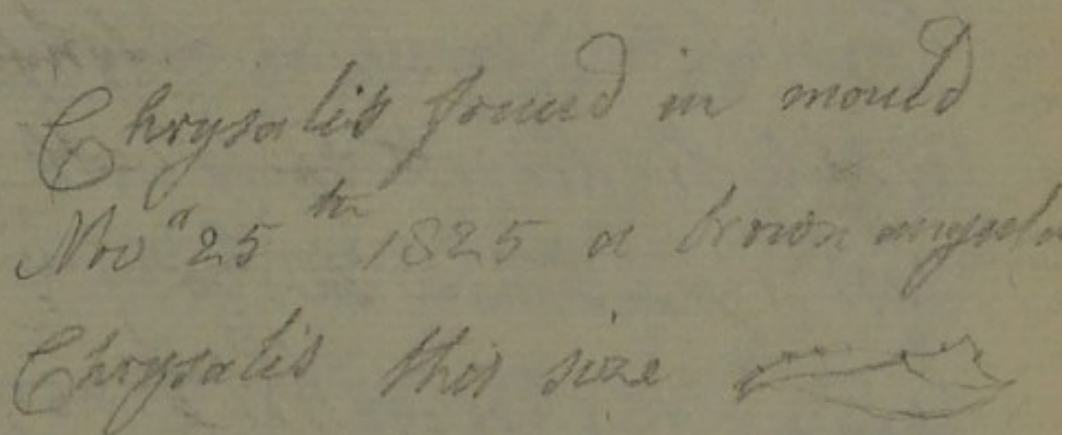 Chrysalis found in mould
Nov.r 25th 1825 a brown angula
Chrysalis this size